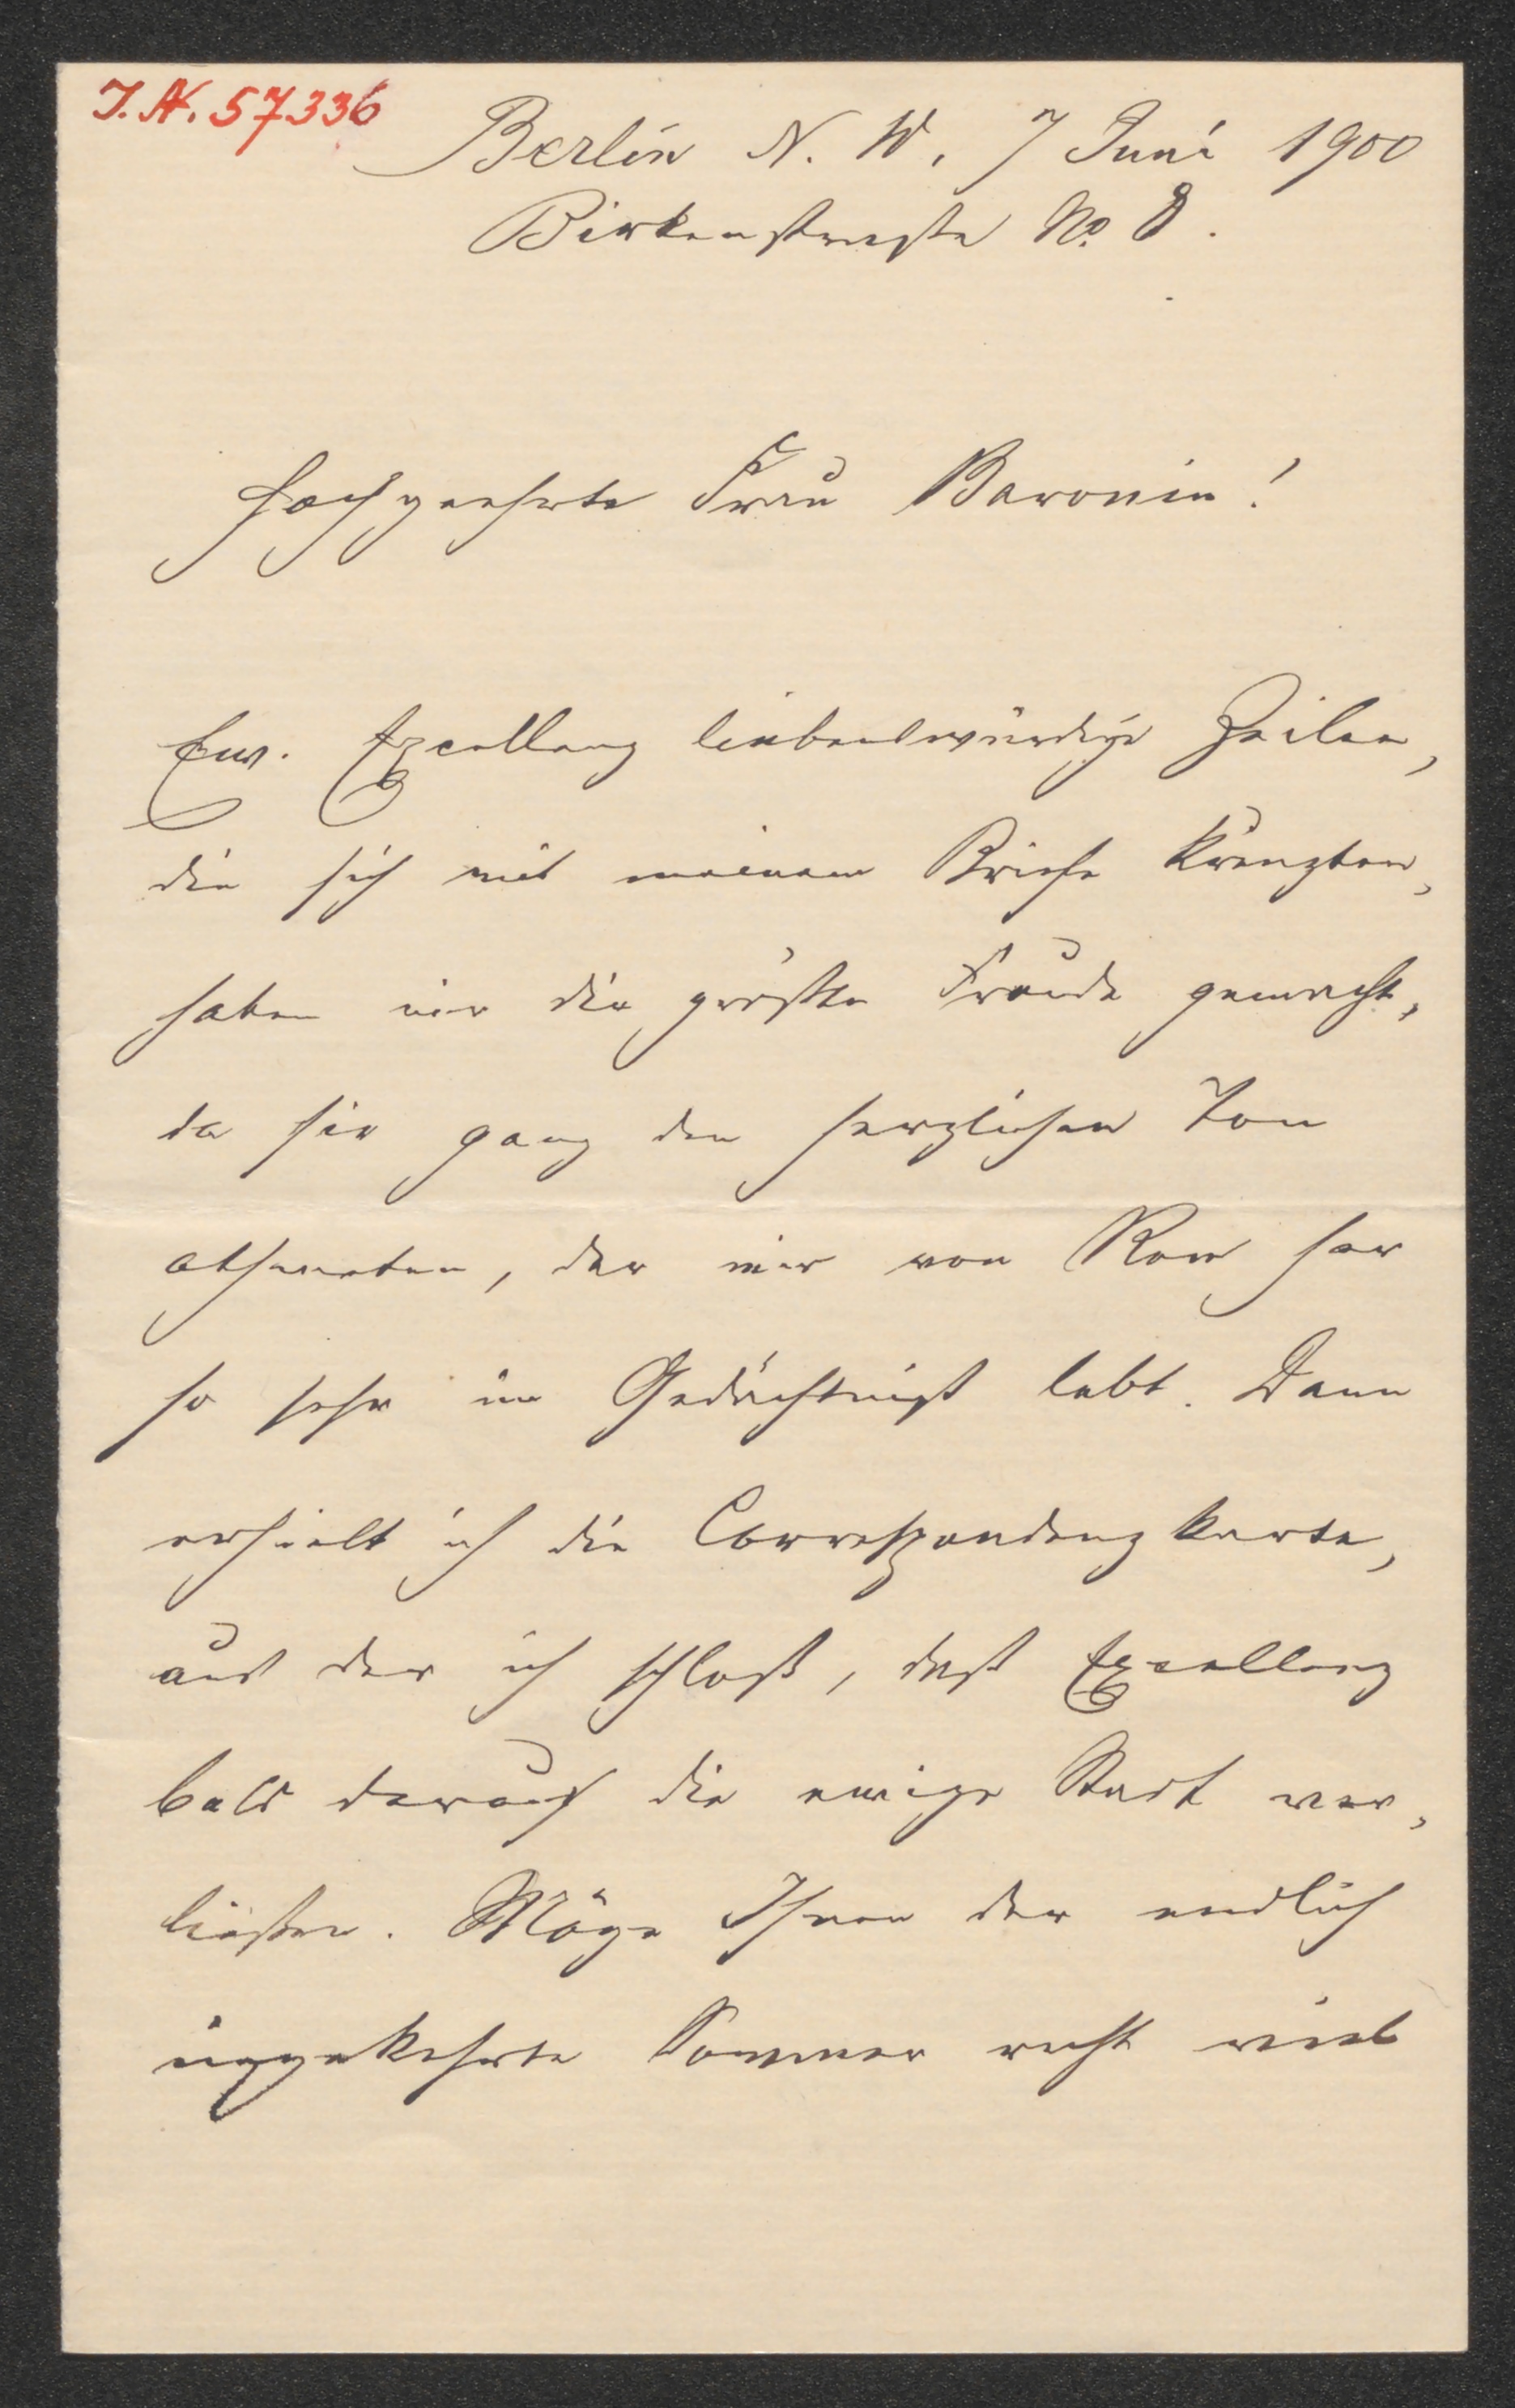 J.N. 57336
Berlin N. W. 7 Juni 1900
Birkenstraße No 8.
Hochgeehrte Frau Baronin!
Euer Excellenz liebenswürdige Zeilen,
die sich mit meinem Briefe kreuzten,
haben mir die größte Freude gemacht,
da sie ganz den herzlichen Ton
athmeten, der mir von Rom her
so sehr im Gedächtniß lebt. Dann
erhielt ich die Correspondenzkarte,
aus der ich schloß, daß Excellenz
bald darauf die ewige Stadt ver-
ließen. Möge Ihnen der endlich
eingekehrte Sommer recht viel